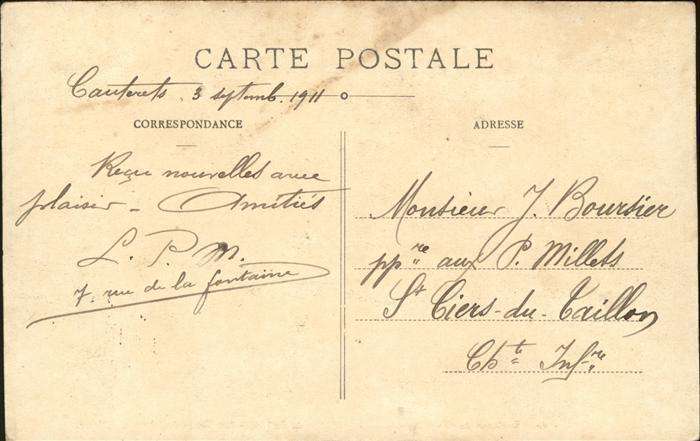 CARTE POSTALE
Cauterets. 3 septemb. 1911
CORRESPONDANCE
ADRESSE
Reçu nouvelles avec
plaisir - Amitiés
L. P. M.
7. rue de la fontaine
Monsieur J. Boursier
ppre aux P. Millets
St Ciers-du-Taillon
Chte Infre